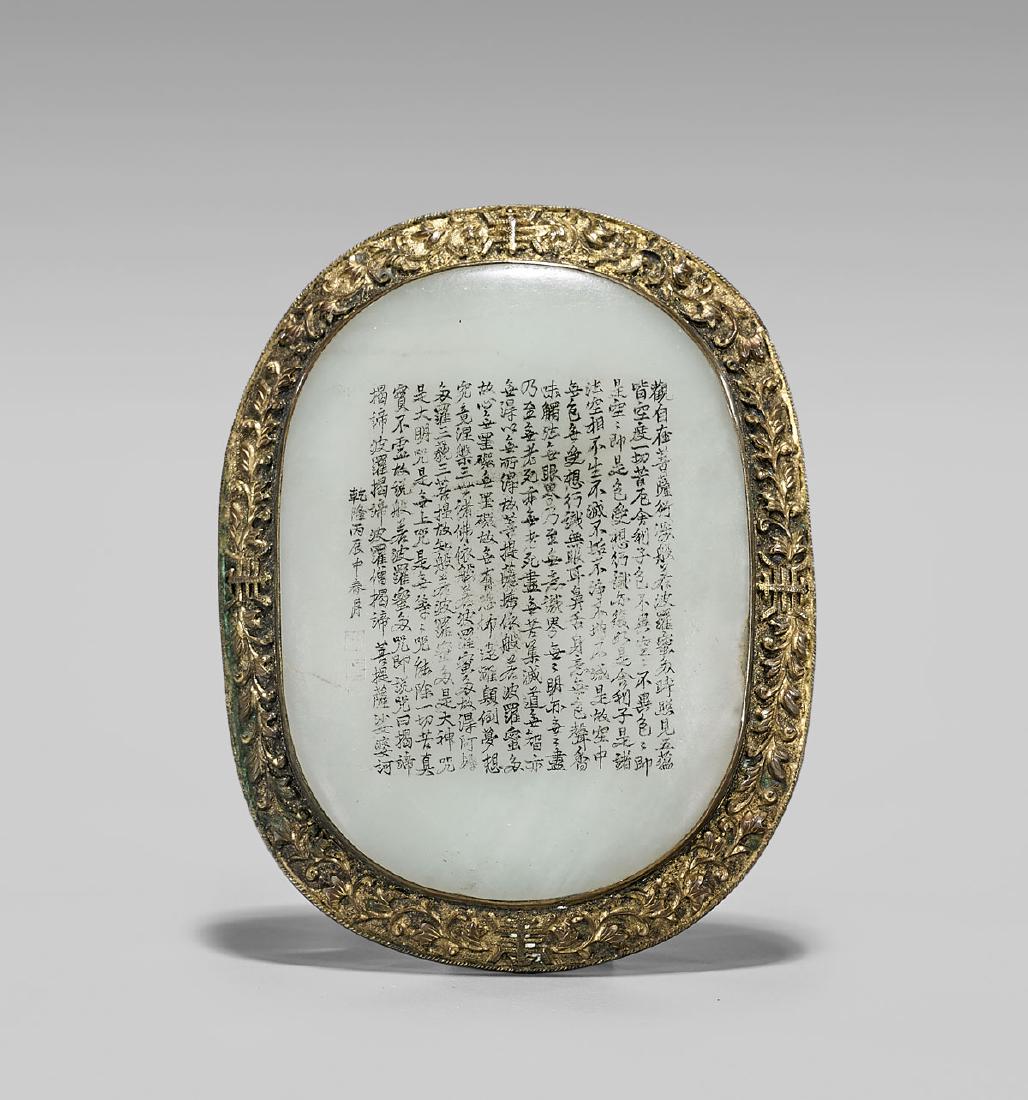 觀自在菩薩行深般若波羅蜜多時照見五蘊
皆空度一切苦厄舍利子色不異空〻不異色〻即
是空〻即是色受想行識亦復如是舍利子是諸
法空相不生不滅不垢不淨不增不減是故空中
無色無受想行識無眼耳鼻舌身意無色聲香
味觸法無眼界乃至無意識界無〻明亦無〻盡
乃至無老死亦無老死盡無苦集滅道無智亦
無得以無所得故菩提薩埵依般若波羅蜜多
故心無罣礙無罣礙故無有恐怖遠離顛倒夢想
究竟涅槃三世諸佛依般若波羅蜜多故得阿耨
多羅三藐三菩提故知般若波羅蜜多是大神咒
是大明咒是無上咒是無等〻咒能除一切苦真
實不虛故說般若波羅蜜多咒即說咒曰揭諦
揭諦波羅揭諦波羅僧揭諦菩提薩娑婆訶
乾隆丙辰中春月